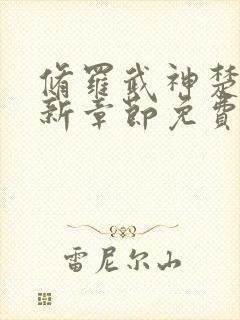 脩羅武神楚
新章節免費
雷尼尔山